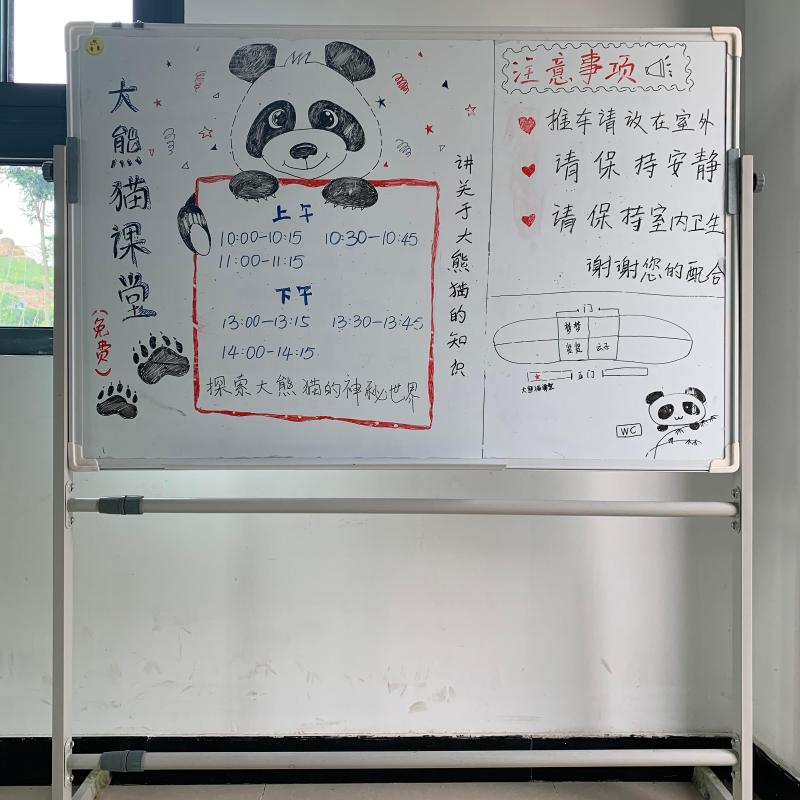 大熊猫课堂
(免费)
上午
10:00-10:15 10:30-10:45
11:00-11:15
下午
13:00-13:15 13:30-13:45
14:00-14:15
探索大熊猫的神秘世界
讲关于大熊猫的知识
注意事项
推车请放在室外
请保持安静
请保持室内卫生
谢谢您的配合
门
大熊猫课堂
WC